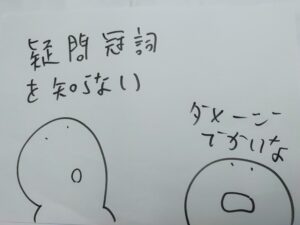 疑問冠詞
を知らない
ダメージ
でかいな